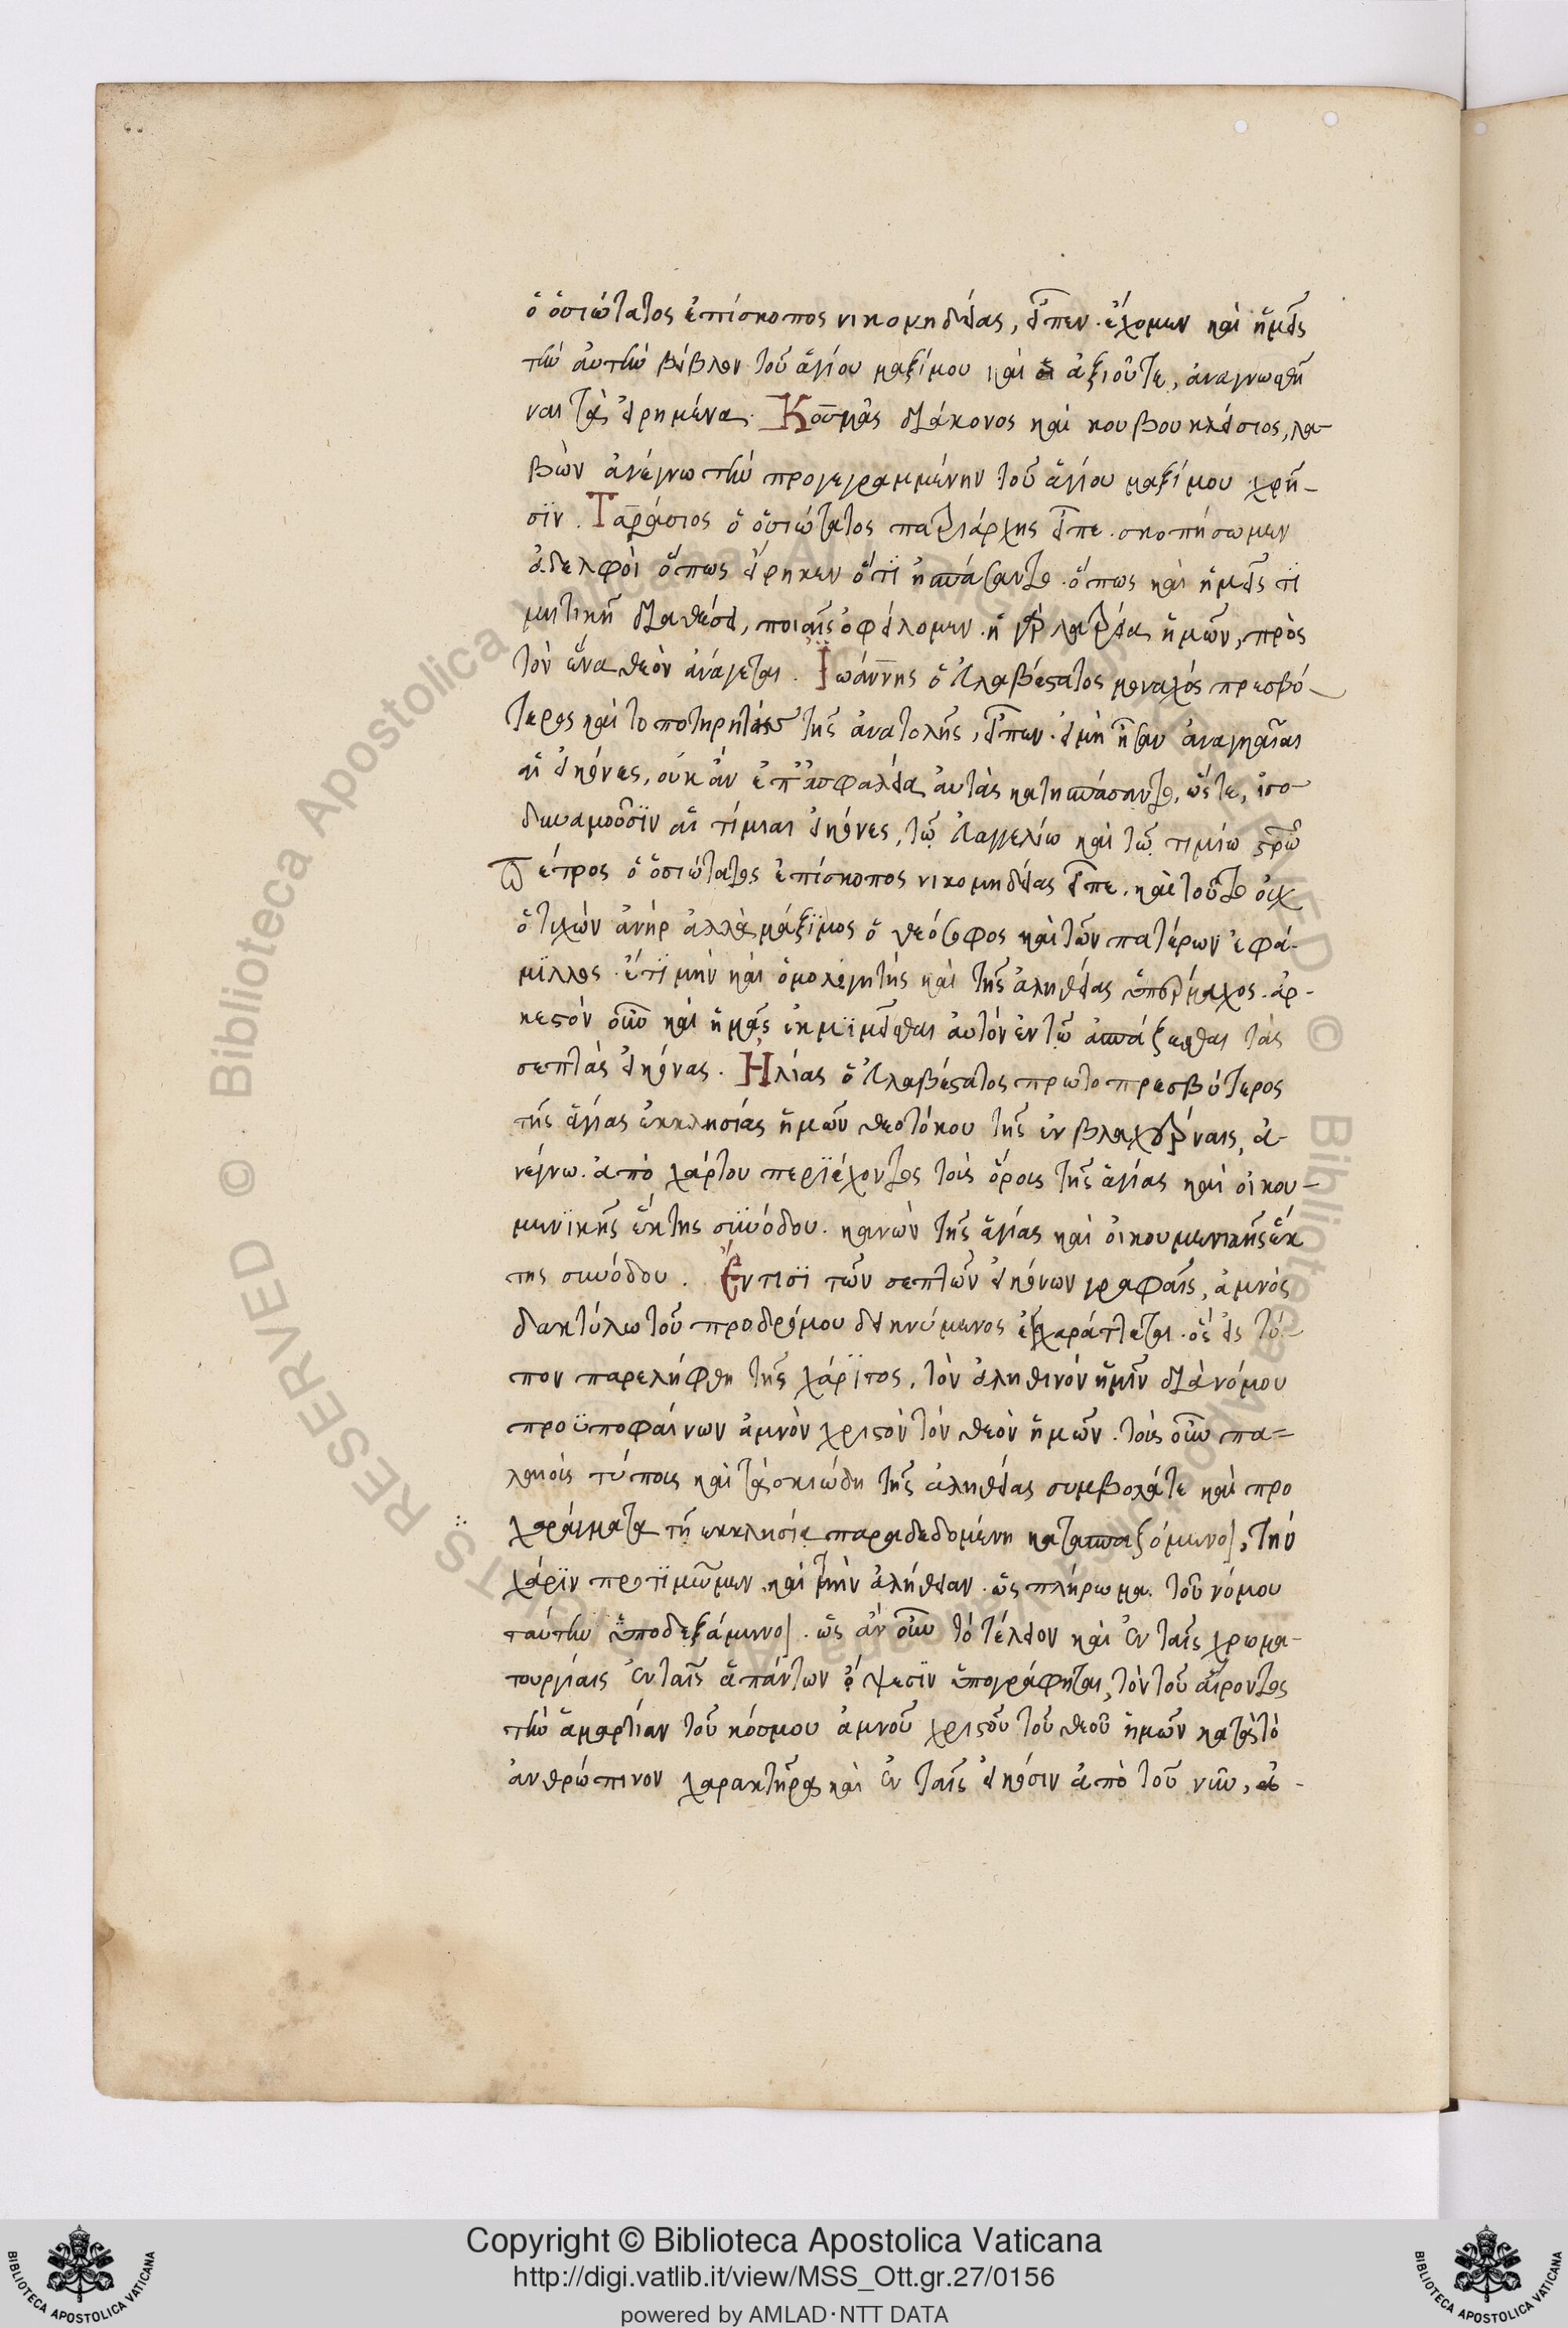 ὁ ὁσιώτατος ἐπίσκοπος νικομηδείας, εἶπεν. ἔχομεν καὶ ἡμεῖς
τὴν αὐτὴν βίβλον τοῦ ἁγίου μαξίμου καὶ εἰ ἀξιοῦτε, ἀναγνωσθῆ
ναι τὰ εἰρημένα. Κοσμᾶς διάκονος καὶ κουβουκλείσιος, λα-
βὼν ἀνέγνω τὴν προγεγραμμένην τοῦ ἁγίου μαξίμου χρῆ-
σϊν. Ταράσιος ὁ ὁσιώτατος πατριάρχης εἶπε. σκοπήσωμεν
ἀδελφοὶ ὅπως εἴρηκεν ὅτϊ ἠσπάσαντο. ὅπως καὶ ἡμεῖς τϊ
μητικῆ διαθέσει, ποιεῖν ὀφείλομεν. ἡ γὰρ λατρεία ἡμῶν, πρὸς
τὸν ἕνα θεὸν ἀνάγεται. Ἰωάννης ὁ εὐλαβέστατος μοναχός πρεσβύ-
τερος καὶ τοποτηρητὴς τῆς ἀνατολῆς, εἶπεν. εἰ μὴ ἦσαν ἀναγκαῖαι
αἱ εἰκόνες, οὐκ ἂν ἐπ' ἀσφαλεία αὐτὰς κατησπάσαντο, ὥστε, ἰσο-
δυναμοῦσϊν αἱ τίμιαι εἰκόνες, τῶ εὐαγγελίω καὶ τῶ τιμίω στρῶ
Πέτρος ὁ ὁσιώτατος ἐπίσκοπος νικομηδείας εἶπε. καὶ τοῦτο οὐχ
ὁ τυχὼν ἀνὴρ ἀλλὰ μάξϊμος ὁ θεόσοφος καὶ τῶν πατέρων ἐφά-
μϊλλος. ἔτϊ μὴν καὶ ὁμολογητὴς καὶ τῆς ἀληθείας ὑπέρμαχος. ἀρ-
κεστὸν οὖν καὶ ἡμᾶς ἐκμϊμεῖσθαι αὐτὸν ἐν τῶ ἀσπάζεσθαι τὰς
σεπτὰς εἰκόνας. Ἠλίας ὁ εὐλαβέστατος πρωτοπρεσβύτερος
τῆς ἁγίας ἐκκλησίας ἡμῶν θεοτόκου τῆς ἐν βλαχέρναις, ἀ-
νέγνω. ἀπὸ χάρτου περϊέχοντος τοὺς ὅρους τῆς ἁγίας καὶ οἰκου-
μενϊκῆς ἕκτης συνόδου. κανὼν τῆς ἁγίας καὶ οἰκουμενικῆς ἕκ
της συνόδου. Ἔν τισϊ τῶν σεπτῶν εἰκόνων γραφαῖς, ἀμνὸς
δακτύλω τοῦ προδρόμου δεικνύμενος ἐγχαράττεται. ὃς εἰς τύ-
πον παρελήφθη τῆς χάρϊτος, τὸν ἀληθινὸν ἡμῖν διὰ νόμου
προϋποφαίνων ἀμνὸν χριστὸν τὸν θεὸν ἡμῶν. τοὺς οὖν πα-
λαιοὺς τύπους καὶ τὰς σκιώδη τῆς ἀληθείας συμβολά τε καὶ προ
χαράγματα τῆ ἐκκλησία παραδεδομένη κατασπαζόμενοι, τὴν
χάρϊν προτϊμῶμεν, καὶ τὴν ἀλήθειαν. ὡς πλήρωμα τοῦ νόμου
ταύτην ὑποδεξάμενοι. ὡς ἂν οὖν τὸ τέλειον καὶ ἐν ταῖς χρωμα-
τουργίαις ἐν ταῖς ἁπάντων ὄψεσϊν ὑπογράφηται, τὸν τοῦ αἴροντος
τὴν ἁμαρτίαν τοῦ κόσμου ἀμνοῦ χριστοῦ τοῦ θεοῦ ἡμῶν κατὰ τὸ
ἀνθρώπινον χαρακτῆρα καὶ ἐν ταῖς εἰκόσιν ἀπὸ τοῦ νῦν, ἀ-
Copyright © Biblioteca Apostolica Vaticana
http://digi.vatlib.it/view/MSS_Ott.gr.27/0156
powered by AMLAD·NTT DATA